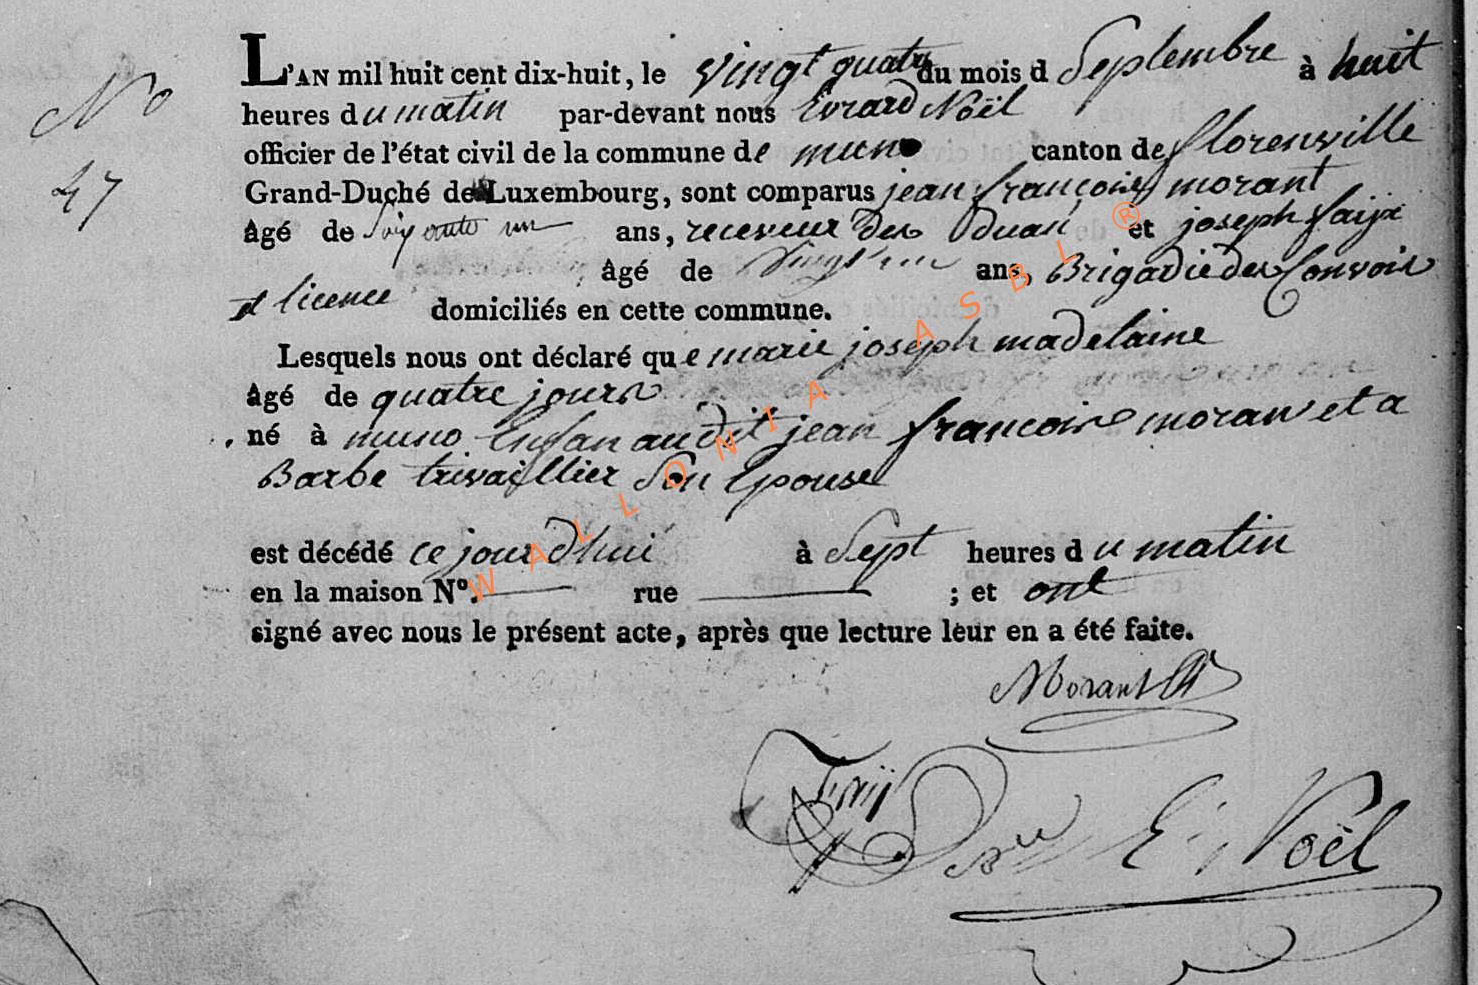 No
47
L'AN mil huit cent dix-huit, le vingt quatre du mois d Septembre à huit
heures du matin par-devant nous Evrard Noël
officier de l'état civil de la commune de muno canton de florenville
Grand-Duché de Luxembourg, sont comparus jean françois morant
âgé de Soixante un ans, receveur des et joseph faix
âgé de ans, Brigadier des Convois
et licence domiciliés en cette commune.
Lesquels nous ont déclaré que marie joseph madelaine
âgé de quatre jours
né à muno Enfan audit jean francois moran et a
Barbe Son Epouse
est décédé ce jourdhui à Sept heures du matin
en la maison N°. rue ; et ont
signé avec nous le présent acte, après que lecture leur en a été faite.
Morant
E. Noël
WALLONIA ASBL ®